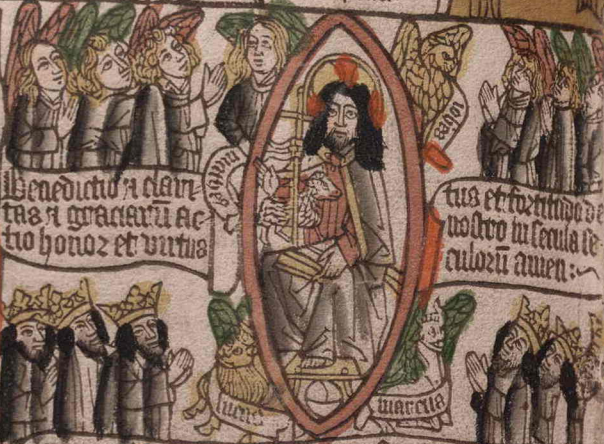 Benedictio ⁊ clari
tas ⁊ graciarū ac
tio honor et virtus
tus et fortitudo
nostro in secula se
culorū amen :~
lucas
marcus